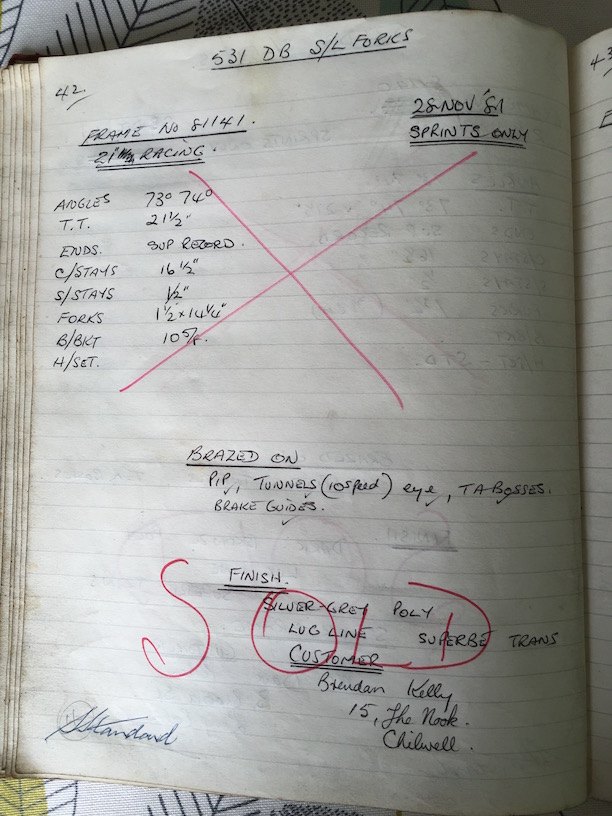 531 DB S/L FORKS
42.
28 NOV '81
SPRINTS ONLY
FRAME No 81141.
21" RACING.
ANGLES 73° 74°
T.T. 21½"
ENDS. SUP RECORD.
C/STAYS 16½"
S/STAYS ½"
FORKS 1½ x 14¼"
B/BKT 10 5/8.
H/SET.
BRAZED ON
PIP, TUNNELS (10 speed) eye, TA BOSSES.
BRAKE GUIDES.
FINISH.
SILVER-GREY POLY
LUG LINE SUPERBE TRANS
SOLD
CUSTOMER
Brendan Kelly
15, The Nook.
Chilwell.
Standard
43